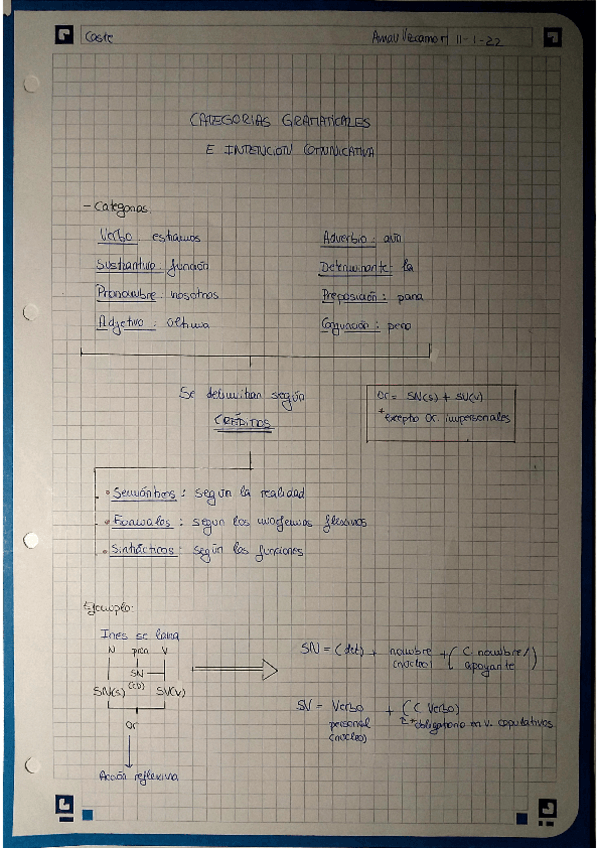 Caste
11-1-22
CATEGORIAS GRAMATICALES
E INTENCION COMUNICATIVA
- Categorias
Verbo: estamos
Adverbio: aún
Sustantivo: función
Determinante: la
Pronombre: nosotros
Preposición: para
Adjetivo: última
Conjunción: pero
Se delimitan según
Or = SN(s) + SV(v)
* excepto Or. impersonales
· Semánticos: según la realidad
· Formales: según los morfemas flexivos
· Sintácticos: según las funciones
Ejemplo:
Ines se lava
N pron V
SN
(CD)
SN(s) SV(v)
Or
Acción reflexiva
SN = (det) + nombre + ( C nombre/ )
(núcleo) apoyante
SV = Verbo + (C Verbo)
personal *obligatorio en v. copulativos
(núcleo)